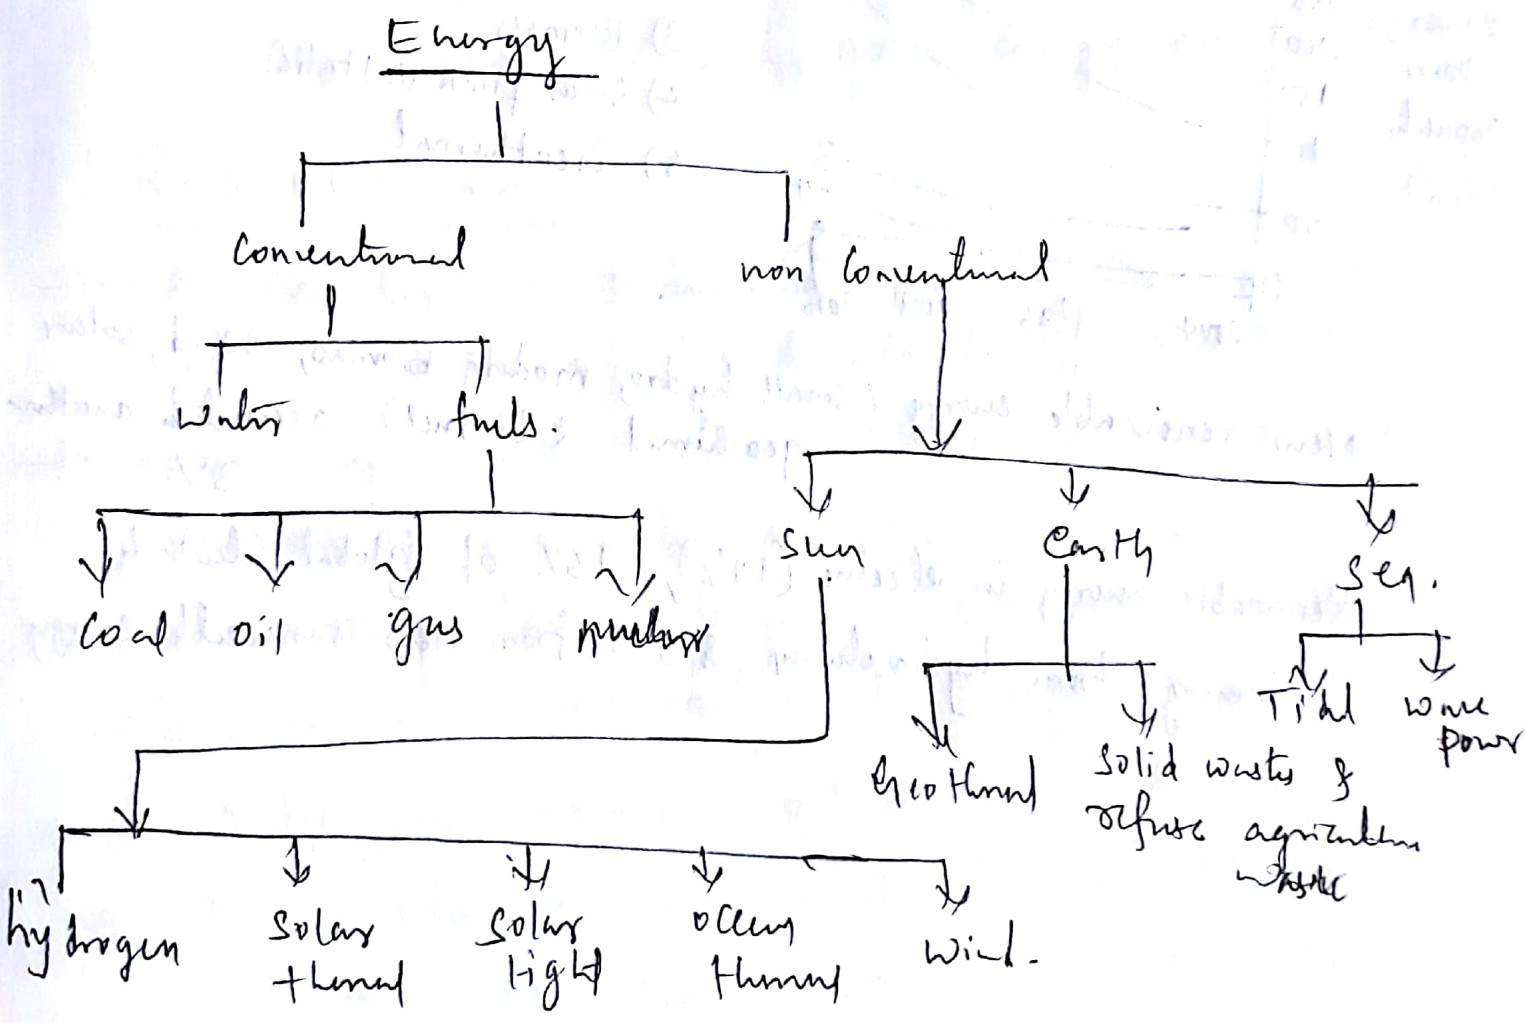 Energy
Conventional
non Conventional
water
fuels.
Sun
Earth
Sea.
Coal oil gas nuclear
Tidal wave
power
Geothermal
Solid wastes &
refuse agriculture
waste
hydrogen
Solar
thermal
Solar
light
Ocean
thermal
Wind.